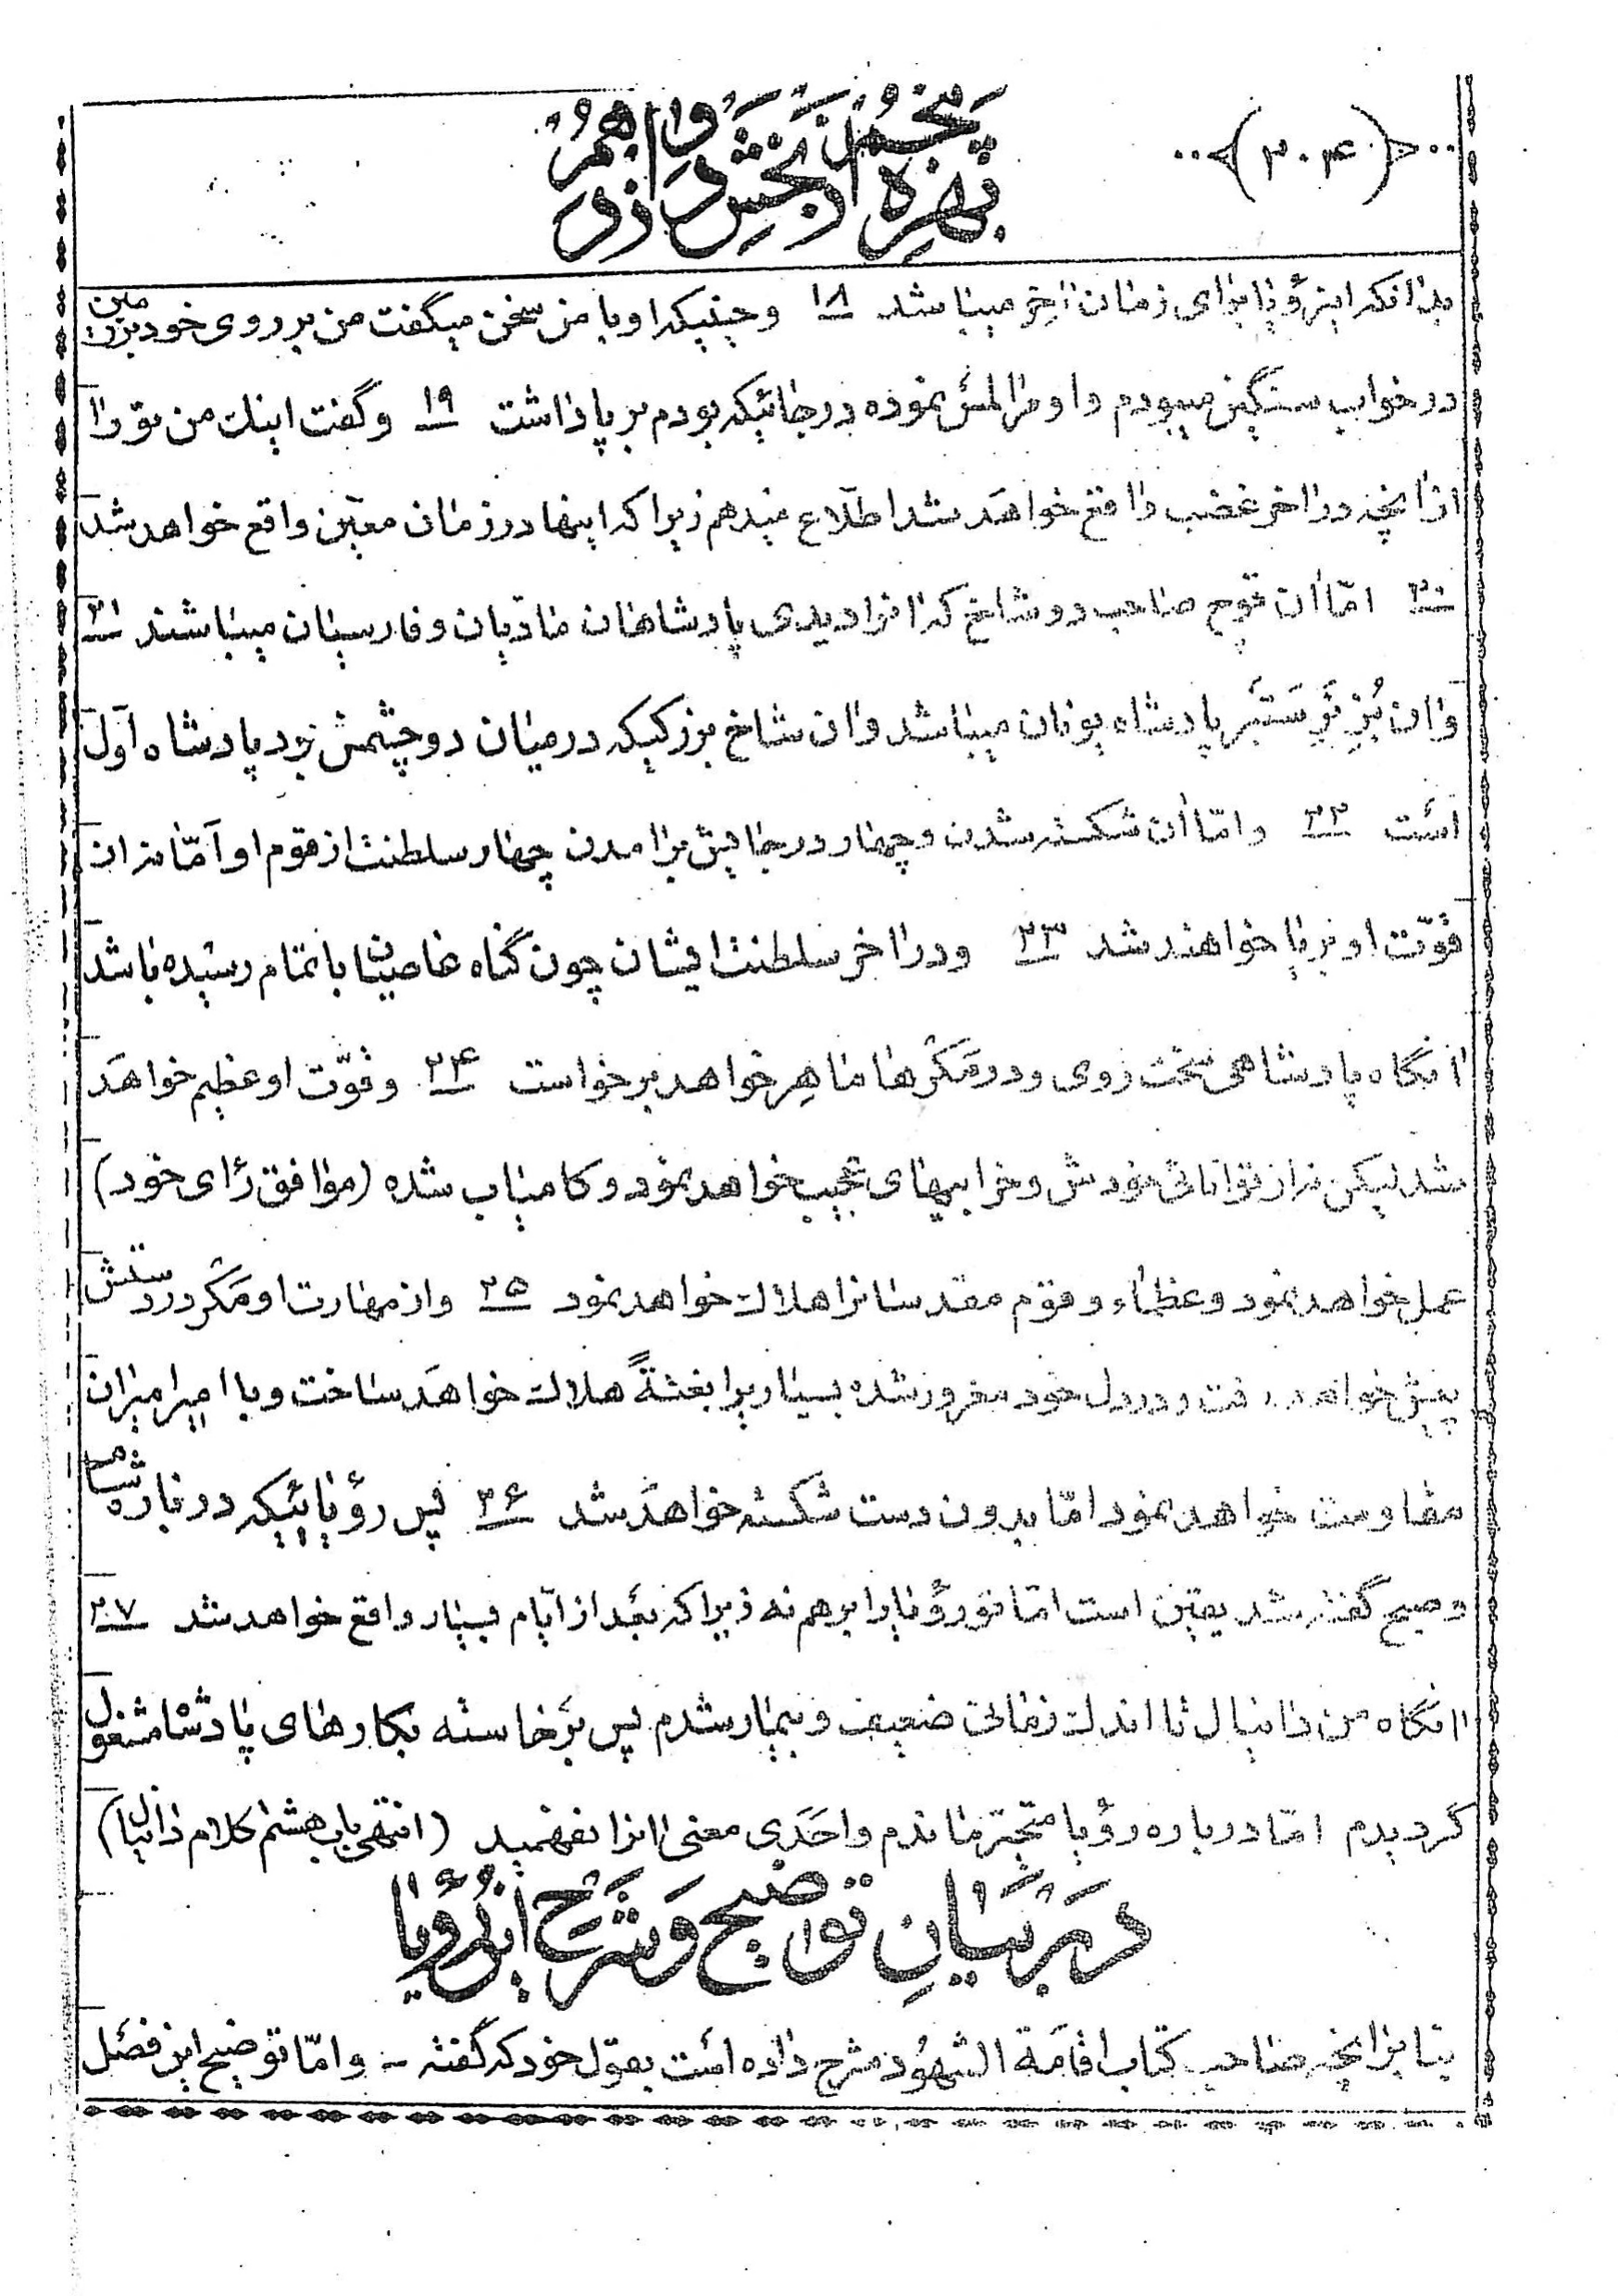 (۳۰۴)
پنجمین واهمر
بهره از بخش دوازدهم
بدانکه اینرؤیا برای زمان اخر میباشد ۱۸ وحینیکه او با من سخن میگفت من بر روی خود بزمین
در خواب سنگین میبودم و او مرا لمس نموده در جائیکه بودم بر پا داشت ۱۹ وگفت اینك من تو را
از انچه در اخر غضب واقع خواهد شد اطلاع میدهم زیرا که اینها در زمان معین واقع خواهد شد
۲۰ امّا ان قوچ صاحب دو شاخ که انرا دیدی پادشاهان مادیان وفارسیان میباشند ۲۱
وان بُزِ نَرِ سَتَبر پادشاه یونان میباشد وان شاخ بزرگیکه در میان دو چشمش بود پادشاه اول
است ۲۲ وامّا ان شکسته شدن وچهار در جایش برامدن چهار سلطنت از قوم او امّا نه ان
قوّت او بر پا خواهند شد ۲۳ ودر اخر سلطنت ایشان چون گناه عاصیان باتمام رسیده باشد
انگاه پادشاهی سخت روی ودر مَکرها ماهِر خواهد برخواست ۲۴ وقوّت او عظیم خواهَد
شد لیکن نه از توانائی خودش وخرابیهای عجیب خواهد نمود وکامیاب شده (موافق رأی خود)
عمل خواهد نمود وعظماء وقوم مقدسانرا هلاك خواهد نمود ۲۵ واز مهارت او مَکر در دستش
پیش خواهد رفت ودر دل خود مغرور شده بسیاریرا بغتةً هلاك خواهَد ساخت وبا امیر امیران
مقاومت خواهد نمود امّا بدون دست شکسته خواهَد شد ۲۶ پس رؤیائیکه در باره شام
وصبح گفته شد یقین است امّا تو رؤیا را بر هم نه زیرا که بَعد از ایّام بسیار واقع خواهد شد ۲۷
انگاه من دانیال تا اندك زمانی ضعیف وبیمار شدم پس برَخاسته بکارهای پادشاه مشغول
گردیدم امّا در باره رؤیا متحیّر ماندم واحَدی معنی انرا نفهمید (انتهی باب هشتم کلام دانیال)
در بیانِ توضیح وشرح این رؤیا
بنا بر انچه صاحب کتاب اقامَة الشهُود شرح داده است بقول خود که گفته - وامّا توضیح این فصَل